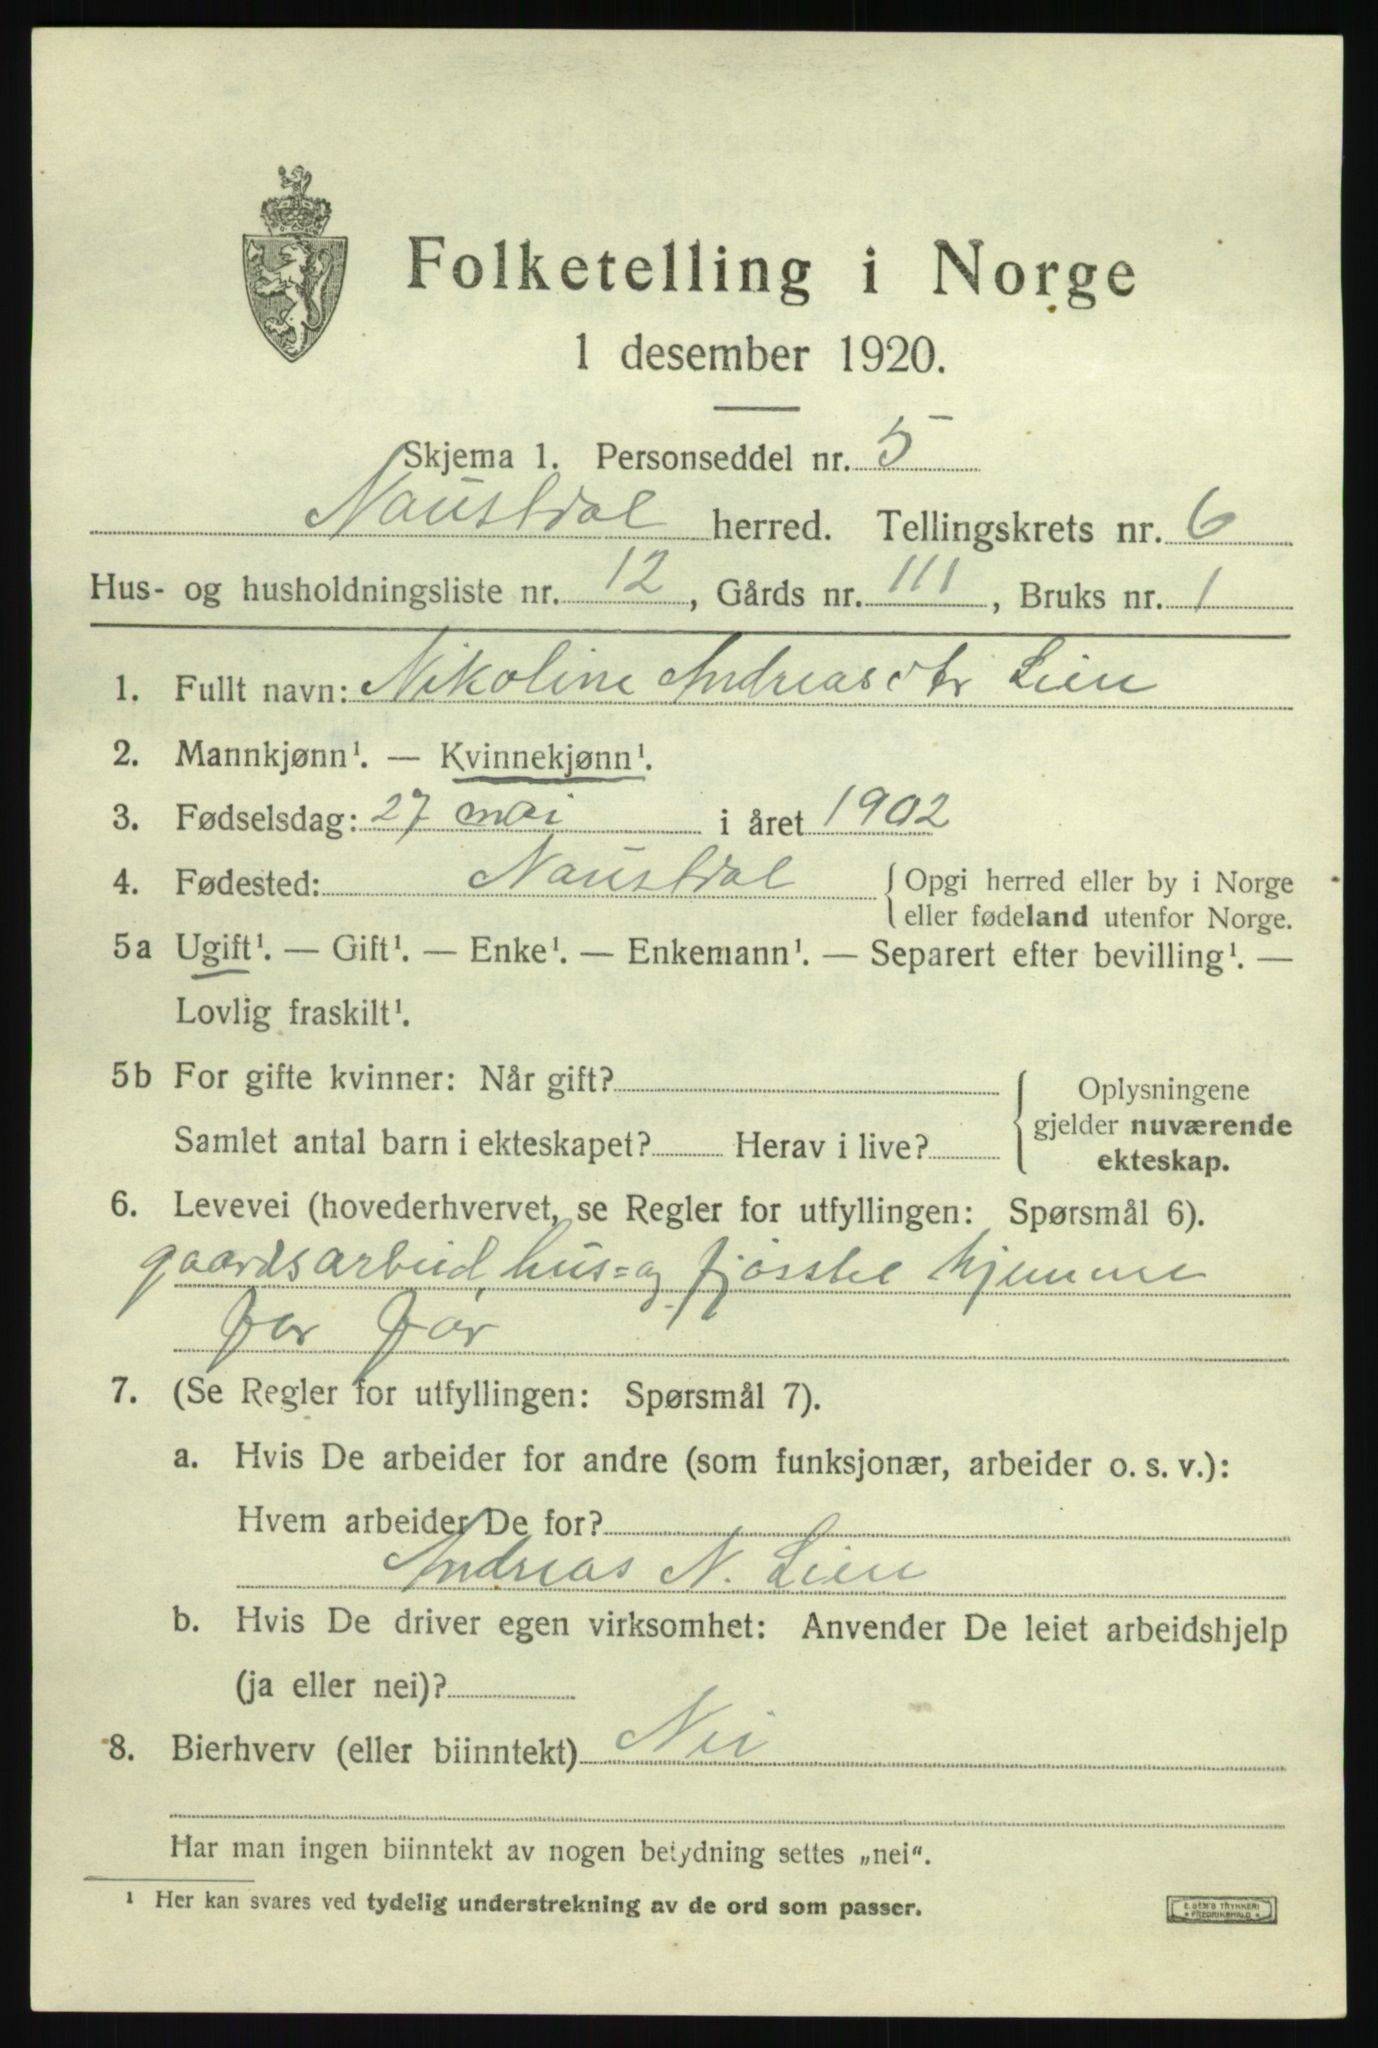 Folketelling i Norge
1 desember 1920.
Skjema 1. Personseddel nr. 5
Naustdal herred. Tellingskrets nr. 6
Hus- og husholdningsliste nr. 12, Gårds nr. 111, Bruks nr. 1
1. Fullt navn: Nikoline Andreasdtr Lien
2. Mannkjønn¹. — Kvinnekjønn¹.
3. Fødselsdag: 27 mai i året 1902
4. Fødested: Naustdal { Opgi herred eller by i Norge
eller fødeland utenfor Norge.
5a Ugift¹. — Gift¹. — Enke¹. — Enkemann¹. — Separert efter bevilling¹. —
Lovlig fraskilt¹.
5b For gifte kvinner: Når gift?
Samlet antal barn i ekteskapet? Herav i live?
{ Oplysningene
gjelder nuværende
ekteskap.
6. Levevei (hovederhvervet, se Regler for utfyllingen: Spørsmål 6).
gaardsarbeid, hus= og fjösstel hjemme
for far
7. (Se Regler for utfyllingen: Spørsmål 7).
a. Hvis De arbeider for andre (som funksjonær, arbeider o. s. v.):
Hvem arbeider De for?
Andreas N. Lien
b. Hvis De driver egen virksomhet: Anvender De leiet arbeidshjelp
(ja eller nei)?
8. Bierhverv (eller biinntekt) Nei
Har man ingen biinntekt av nogen betydning settes „nei“.
¹ Her kan svares ved tydelig understrekning av de ord som passer.
E. SEM'S TRYKKERI
FREDRIKSHALD